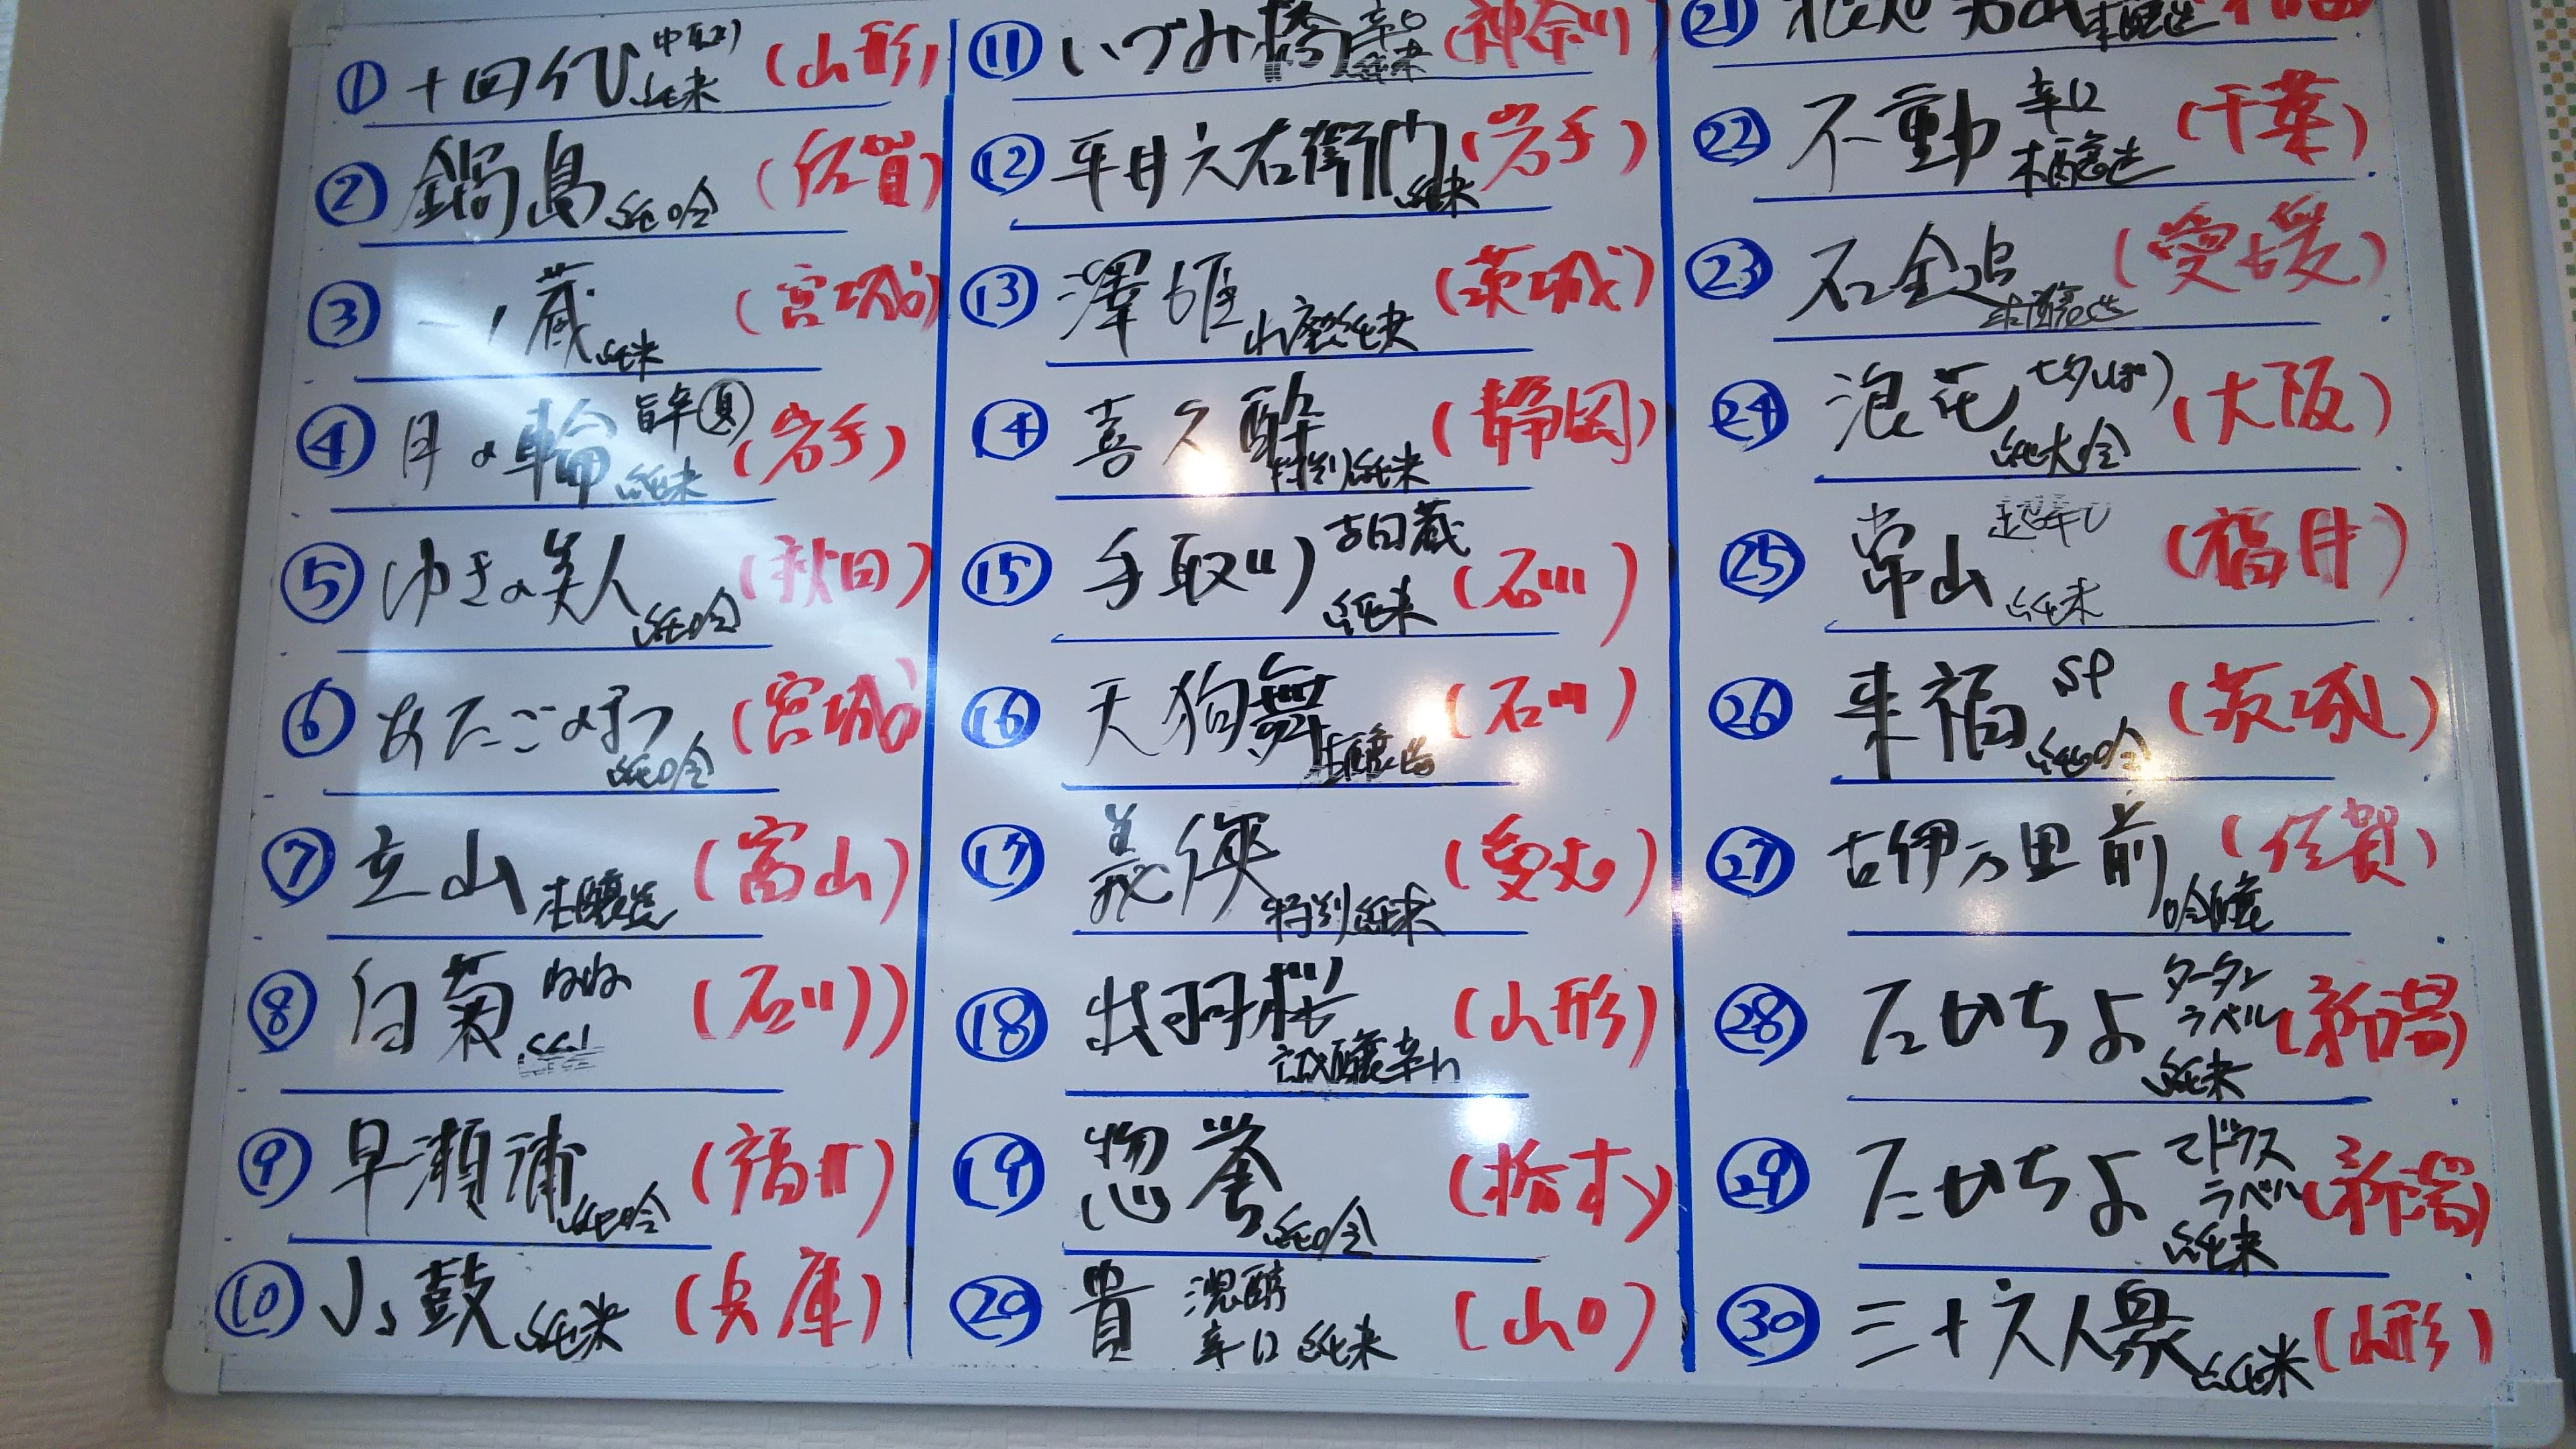 ① 十四代 中取り 純米 (山形)
② 鍋島 純吟 (佐賀)
③ 一ノ蔵 純米 (宮城)
④ 月の輪 旨辛 夏 純米 (岩手)
⑤ ゆきの美人 純吟 (秋田)
⑥ あたごのまつ 純吟 (宮城)
⑦ 立山 本醸造 (富山)
⑧ 白菊 (石川)
⑨ 早瀬浦 純吟 (福井)
⑩ 小鼓 純米 (兵庫)
⑪ いづみ橋 辛口 純米 (神奈川)
⑫ 平井六右衛門 純米 (岩手)
⑬ 澤姫 山廃純米 (茨城)
⑭ 喜久酔 特別純米 (静岡)
⑮ 手取川 吉田蔵 純米 (石川)
⑯ 天狗舞 本醸造 (石川)
⑰ 義侠 特別純米 (愛知)
⑱ 出羽桜 誠醸辛口 (山形)
⑲ 惣誉 純吟 (栃木)
⑳ 貴 濃醇辛口 純米 (山口)
㉑ 本醸造
㉒ 不動 辛口 本醸造 (千葉)
㉓ 石鎚 本醸造 (愛媛)
㉔ 浪花 七夕しぼり 純大吟 (大阪)
㉕ 常山 超辛口 純米 (福井)
㉖ 来福 SP 純吟 (茨城)
㉗ 古伊万里 前 吟醸 (佐賀)
㉘ たかちよ タータンラベル 純米 (新潟)
㉙ たかちよ マドラスラベル 純米 (新潟)
㉚ 三十六人衆 純米 (山形)